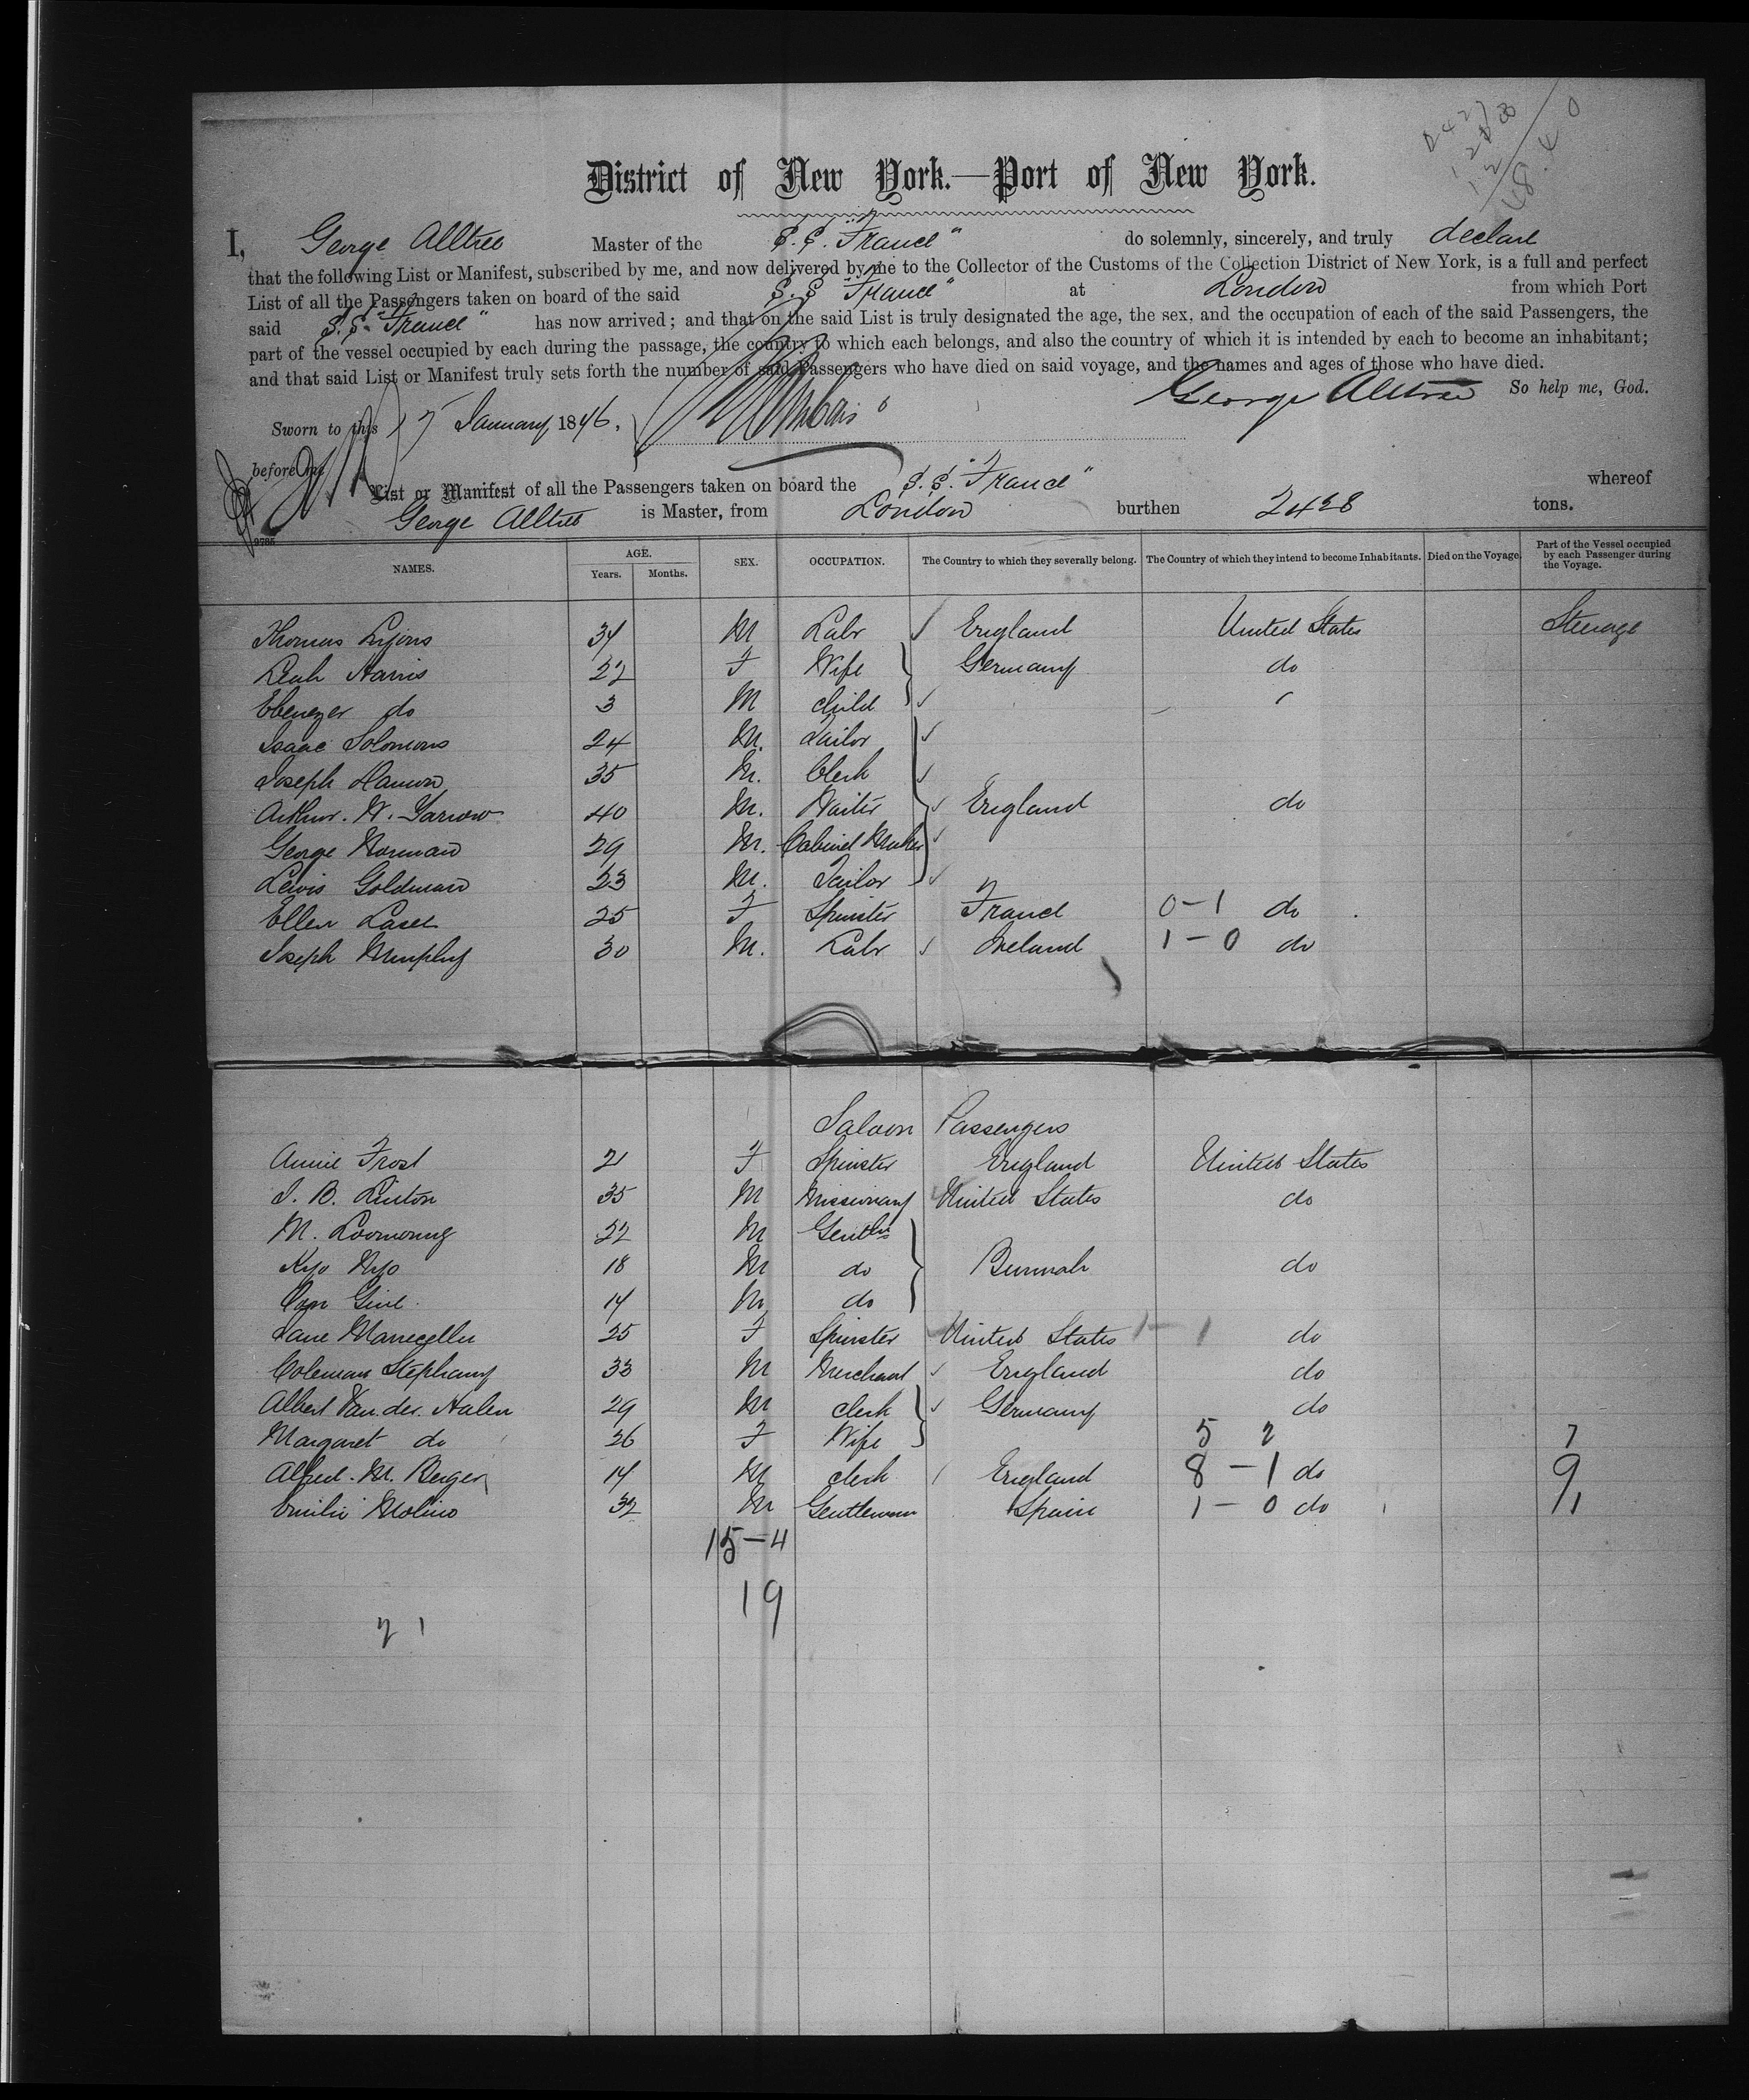 District of New York.—Port of New York.
I, George Alltree Master of the S.S. "France" do solemnly, sincerely, and truly declare
that the following List or Manifest, subscribed by me, and now delivered by me to the Collector of the Customs of the Collection District of New York, is a full and perfect
List of all the Passengers taken on board of the said S.S "France" at London from which Port
said S.S. "France" has now arrived; and that on the said List is truly designated the age, the sex, and the occupation of each of the said Passengers, the
part of the vessel occupied by each during the passage, the country to which each belongs, and also the country of which it is intended by each to become an inhabitant;
and that said List or Manifest truly sets forth the number of said Passengers who have died on said voyage, and the names and ages of those who have died.
So help me, God.
George Alltree
Sworn to this 17 January 18
before me
List or Manifest of all the Passengers taken on board the S.S. "France" whereof
George Alltree is Master, from London burthen 2428 tons.
9785
NAMES. AGE. Years. Months. SEX. OCCUPATION. The Country to which they severally belong. The Country of which they intend to become Inhabitants. Died on the Voyage. Part of the Vessel occupied by each Passenger during the Voyage.
Thomas Lyons 34 M Labr England United States Steerage
Leah Harris 22 F Wife Germany do
Ebenezer do 3 M child
Isaac Solomons 24 M. Tailor
Joseph 35 M. Clerk
Arthur. W. Yarrow 40 M. Waiter England do
George Norman 29 M. Cabinet Maker
Lewis Goldman 23 M. Tailor
Ellen 25 F Spinster France 0-1 do
Joseph Murphy 30 M. Labr Ireland 1-0 do
Saloon Passengers
Annie Frost 21 F Spinster England United States
35 M Missionary United States do
M. 22 M Gentln
18 M do Burmah do
14 M do
25 F Spinster United States 1-1 do
Coleman Stephany 33 M Merchant England do
Albert Van. der. Halen 29 M clerk Germany do
Margaret do 26 F Wife 5 2 7
Alfred. M. Berger 14 M clerk England 8-1 do 9
Emilio Molino 32 M Gentleman Spain 1-0 do 1
15-4
19
21